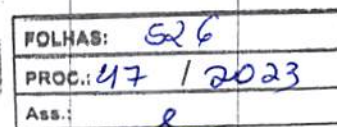 FOLHAS: 526
PROC.: 47 / 2023
Ass.: